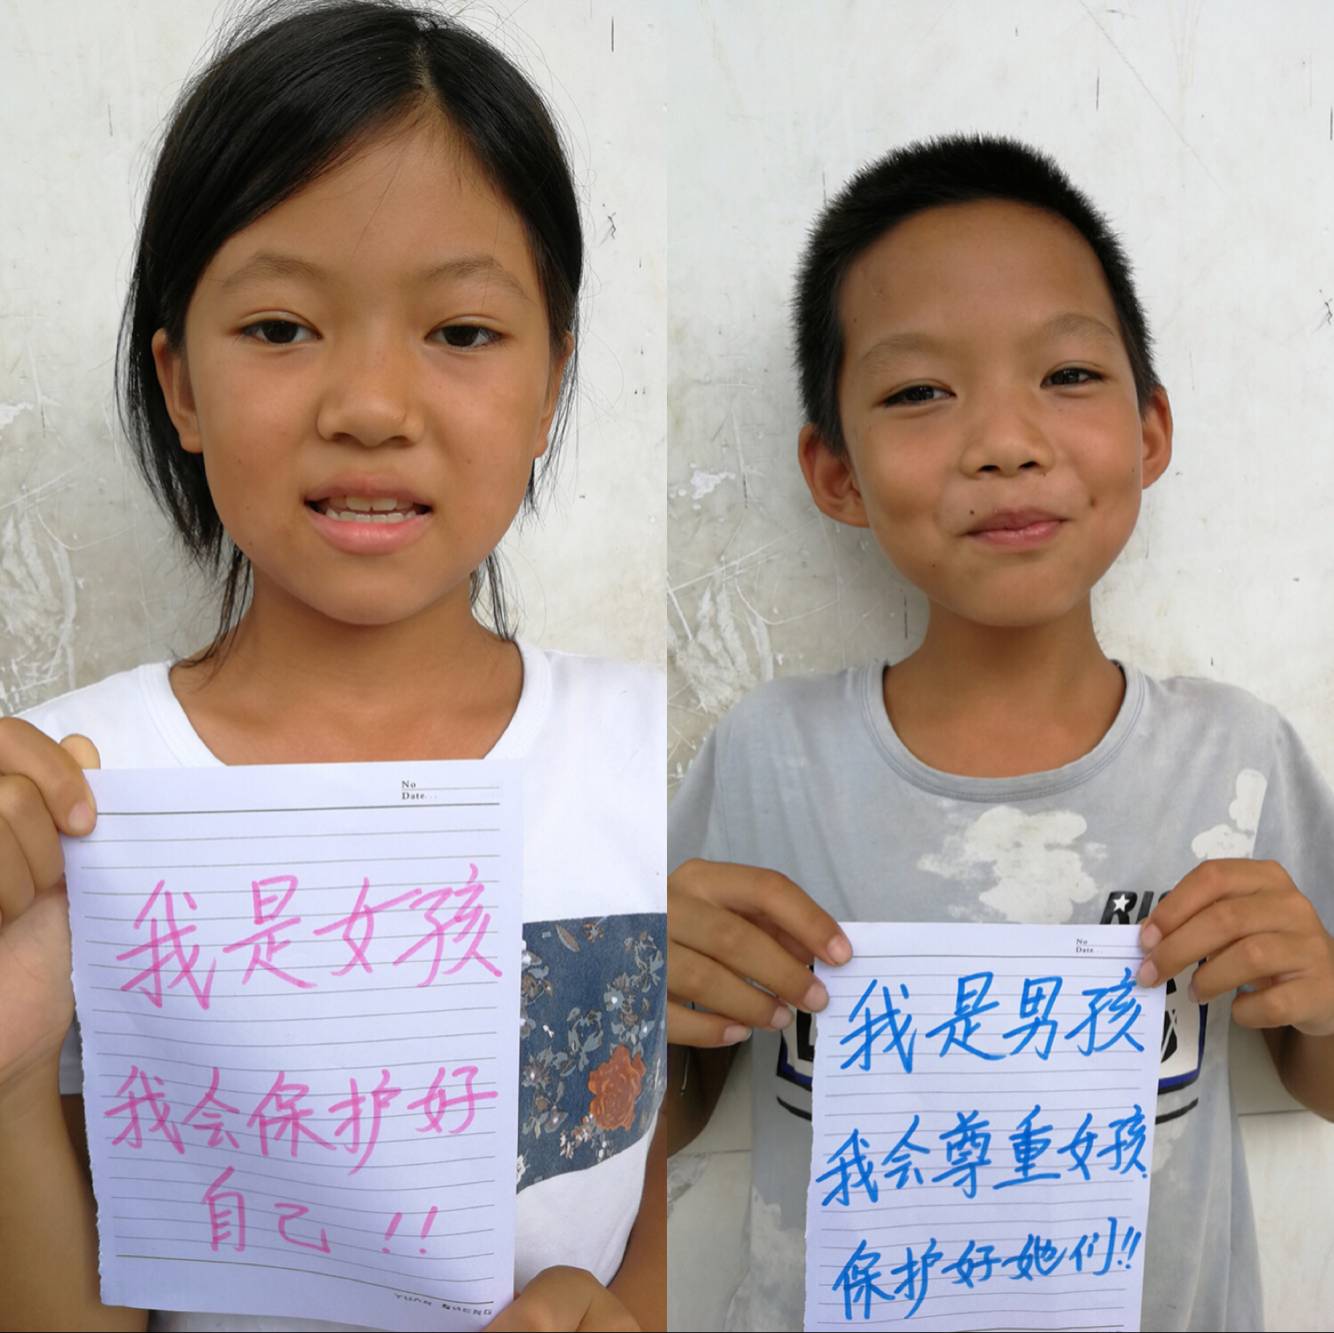 No
Date...
我是女孩
我会保护好
自己！！
YUAN SHENG
RIS
No
Date...
我是男孩
我会尊重女孩
保护好她们！！